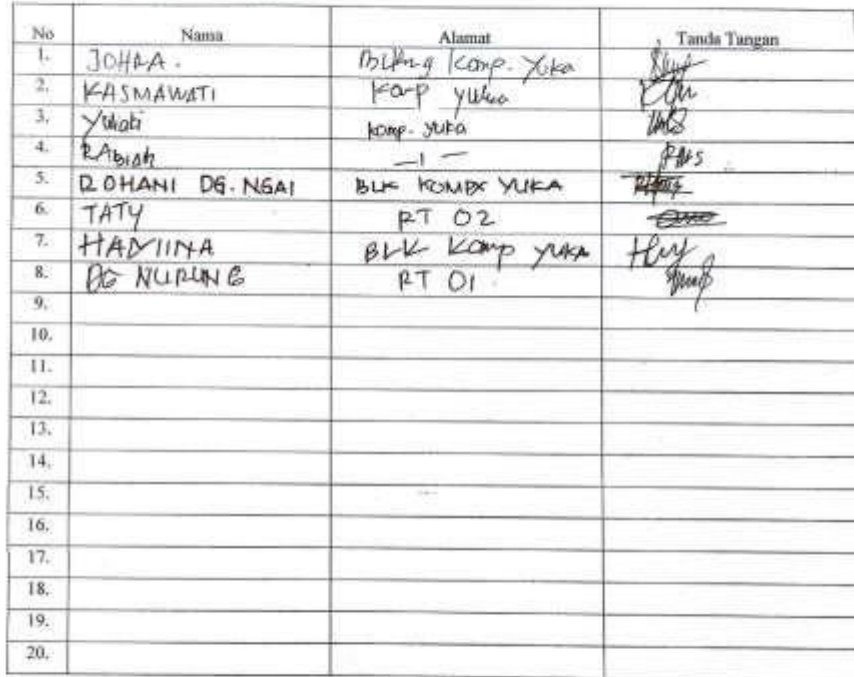 No Nama Alamat Tanda Tangan
1. JOHRA. Komp. Yuka
2. KASMAWATI Komp Yuka
3. Yuliati Komp. Yuka
4. RABIAH —1—
5. ROHANI DG. NGAI BLK KOMPX YUKA
6. TATY RT 02
7. BLK Komp YUKA
8. DG NURUNG RT 01
9.
10.
11.
12.
13.
14.
15.
16.
17.
18.
19.
20.